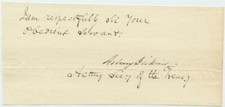 I am respectfully Sir Your
Obedient Servant.
Acting Secy of the Navy